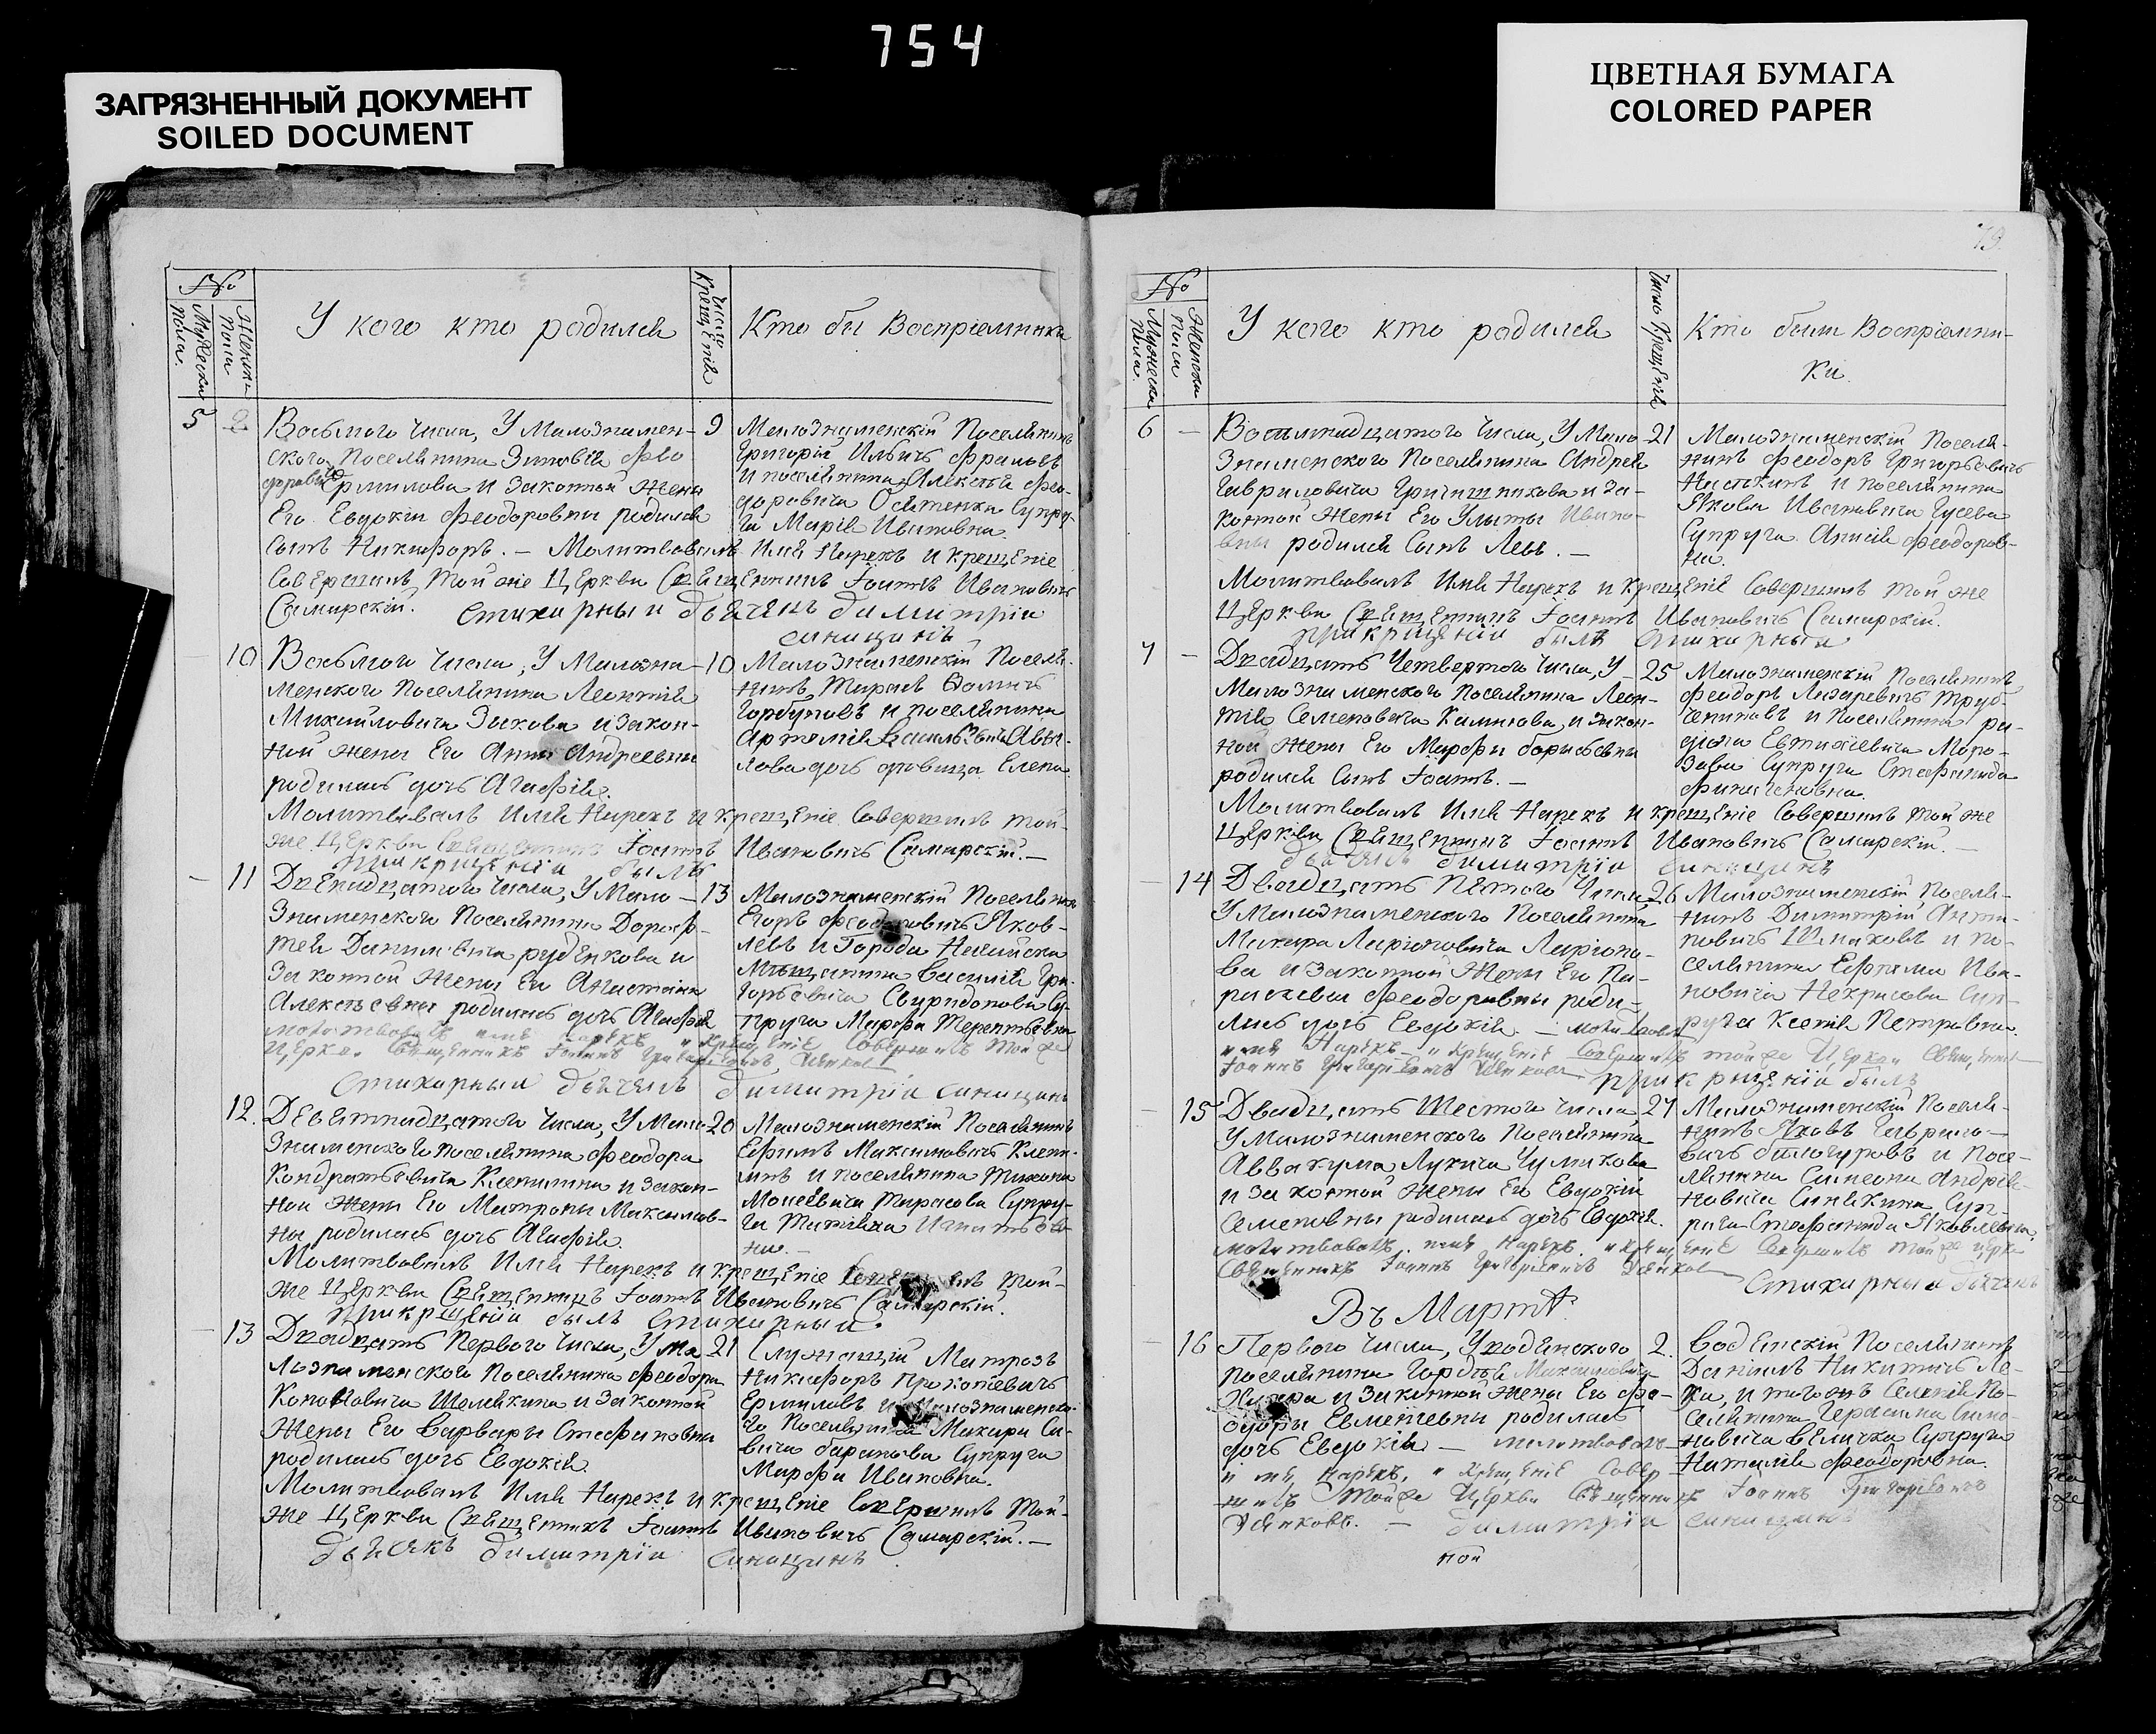 754
ЗАГРЯЗНЕННЫЙ ДОКУМЕНТ
SOILED DOCUMENT
ЦВЕТНАЯ БУМАГА
COLORED PAPER
№
Мужеска пола.
Женска пола
У кого кто родился
Число Крещенія
Кто бы Воспріемники
5
9
Восьмого Числа, У Малознамен-
ского Поселянина Зиновія Фео
доровича Ермилова и Законной Жены
Его Евдокіи Феодоровны родился
Сынъ Никифоръ. — Молитвовалъ Имя Нарекъ и Крещеніе
Совершилъ Той же Церкви Священникъ Іоаннъ Ивановичъ
Самарскій. Стихарный дьячекъ Димитрій
Синицинъ
Малознаменскій Поселянинъ
Григорій Ильичъ Фроловъ
и поселянина Алексѣя Фео-
доровича Супру-
га Марія Ивановна.
10
Восьмого Числа, У Малозна-
менского Поселянина Леонтія
Михайловича Зыкова и закон-
ной жены Его Анны Андреевны
родилась дочь Агафія.
Молитвовалъ Имя Нарекъ и Крещеніе Совершилъ Той-
же Церкви Священникъ Іоаннъ Ивановичъ Самарскій. —
При крещеніи былъ
10
Малознаменскій Поселя-
нинъ Тарасъ Фомичъ
Горбуновъ и поселянина
Артемія Васильевича
дочь дѣвица Елена
11
Двенадцатого Числа, У Мало-
Знаменского Поселянина Дороф-
тея Даниловича Руденкова и
Законной Жены Его Анастасіи
Алексѣевны родилась дочь Агафія
молитвовалъ имя нарекъ и крещеніе совершилъ той же
Церкви Священникъ Іоаннъ Григорьевичъ
Стихарный дьячекъ Димитрій Синицинъ
13
Малознаменскій Поселянинъ
Егоръ Феодоровичъ Яков-
левъ и Города
Мѣщанина Василія Гри-
горьевича Свиридонова Су-
пруга Марфа Терентьевна
12.
Девятнадцатого Числа, У Мало
Знаменского поселянина Феодора
Кондратьевича Клепинина и закон-
ной Жены Его Матроны Максимов-
ны родилась дочь Агафія.
Молитвовалъ Имя Нарекъ и Крещеніе Совершилъ Той-
же Церкви Священникъ Іоаннъ Ивановичъ Самарскій.
При крещеніи былъ Стихарный
20
Малознаменскій Поселянинъ
Ефимъ Максимовичъ Клепи-
нинъ и поселянина Тихона
Моисеевича Тарасова Супру-
га Татіана Игнатьев
на. —
13
Двадцать Первого Числа, У Ма
лознаменского Поселянина Феодора
Кононовича Шемякина и Законной
Жены Его Варвары Стефановны
родилась дочь Евдокія.
Молитвовалъ Имя Нарекъ и Крещеніе Совершилъ Той-
же Церкви Священникъ Іоаннъ Ивановичъ Самарскій. —
дьячекъ Димитрій Синицинъ
21
Служащій Матрозъ
Никифоръ Прокопіевичъ
Ермиловъ и Малознаменска-
го Поселянина Макара Са-
вича Баранова Супруга
Марфа Ивановна.
№
Мужеска пола.
Женска пола
У кого кто родился
Число Крещенія
Кто были Воспріемни-
ки.
6 —
Восемнадцатого Числа, У Мало
Знаменского Поселянина Андрея
Гавриловича Гричишникова и За-
конной Жены Его Улиты Ивано-
вны родился Сынъ Левъ. —
Молитвовалъ Имя Нарекъ и Крещеніе Совершилъ Той же
Церкви Священникъ Іоаннъ Ивановичъ Самарскій.
При крещеніи былъ Стихарный
21
Малознаменскій Поселя-
нинъ Феодоръ Григорьевичъ
и поселянина
Якова Ивановича Гусева
Супруга Анисія Феодоров-
на.
7 —
Двадцать Четвертого Числа, У
Малознаменского Поселянина Леон-
тія Семеновича Камилова и Закон-
ной Жены Его Марфы Борисовны
родился Сынъ Іоаннъ. —
Молитвовалъ Имя Нарекъ и Крещеніе Совершилъ Той же
Церкви Священникъ Іоаннъ Ивановичъ Самарскій. —
дьячекъ Димитрій Синицинъ
25
Малознаменскій Поселянинъ
Феодоръ Лазаревичъ Труб-
чениновъ и Поселянина Ро-
діона Евтихіевича Моро-
зова Супруга Стефанида
14
Двадцать Пятого Числа
У Малознаменского Поселянина
Макара Ларіоновича Ларіоно-
ва и Законной Жены Его Па-
раскевы Феодоровны роди-
лась дочь Евдокія — молитвовалъ
имя Нарекъ и крещеніе Совершилъ той же Церкви Священ
Іоаннъ Григорьевичъ При крещеніи былъ
26
Малознаменскій Поселя-
нинъ Димитрій Анти-
повичъ Шпаковъ и по-
селянина Ефрема Ива-
новича Некрасова Суп-
руга Ксенія Петровна.
15
Двадцать Шестого Числа
У Малознаменского Поселянина
Аввакума Лукича Чумакова
и Законной Жены Его Евдокіи
Семеновны родилась дочь Евдокія.
молитвовалъ имя нарекъ и крещеніе совершилъ той же церкви
Священникъ Іоаннъ Григорьевичъ
Стихарный дьячекъ
27
Малознаменскій Поселя-
нинъ Яковъ Гаврило-
вичъ Билогуровъ и Посе-
лянина Симеона Андрее-
новича Синякина Суп-
руга Стефанида Яковлевна.
Въ Мартѣ
16
Первого Числа, У водянского
поселянина Гордѣя Максимовича
и Законной Жены Его Фео-
доры Евменіевны родилась
дочь Евдокія — молитвовалъ
имя нарекъ, и крещеніе Совер
шилъ Той же Церкви Священникъ Іоаннъ Григорьевичъ
— Димитрій Синицинъ
2.
Водянскій Поселянинъ
Даніилъ Никитичъ Ле-
ка, и того жъ Селенія По-
селянина Герасима Симо-
новича Величка Супруга
Наталія Феодоровна.